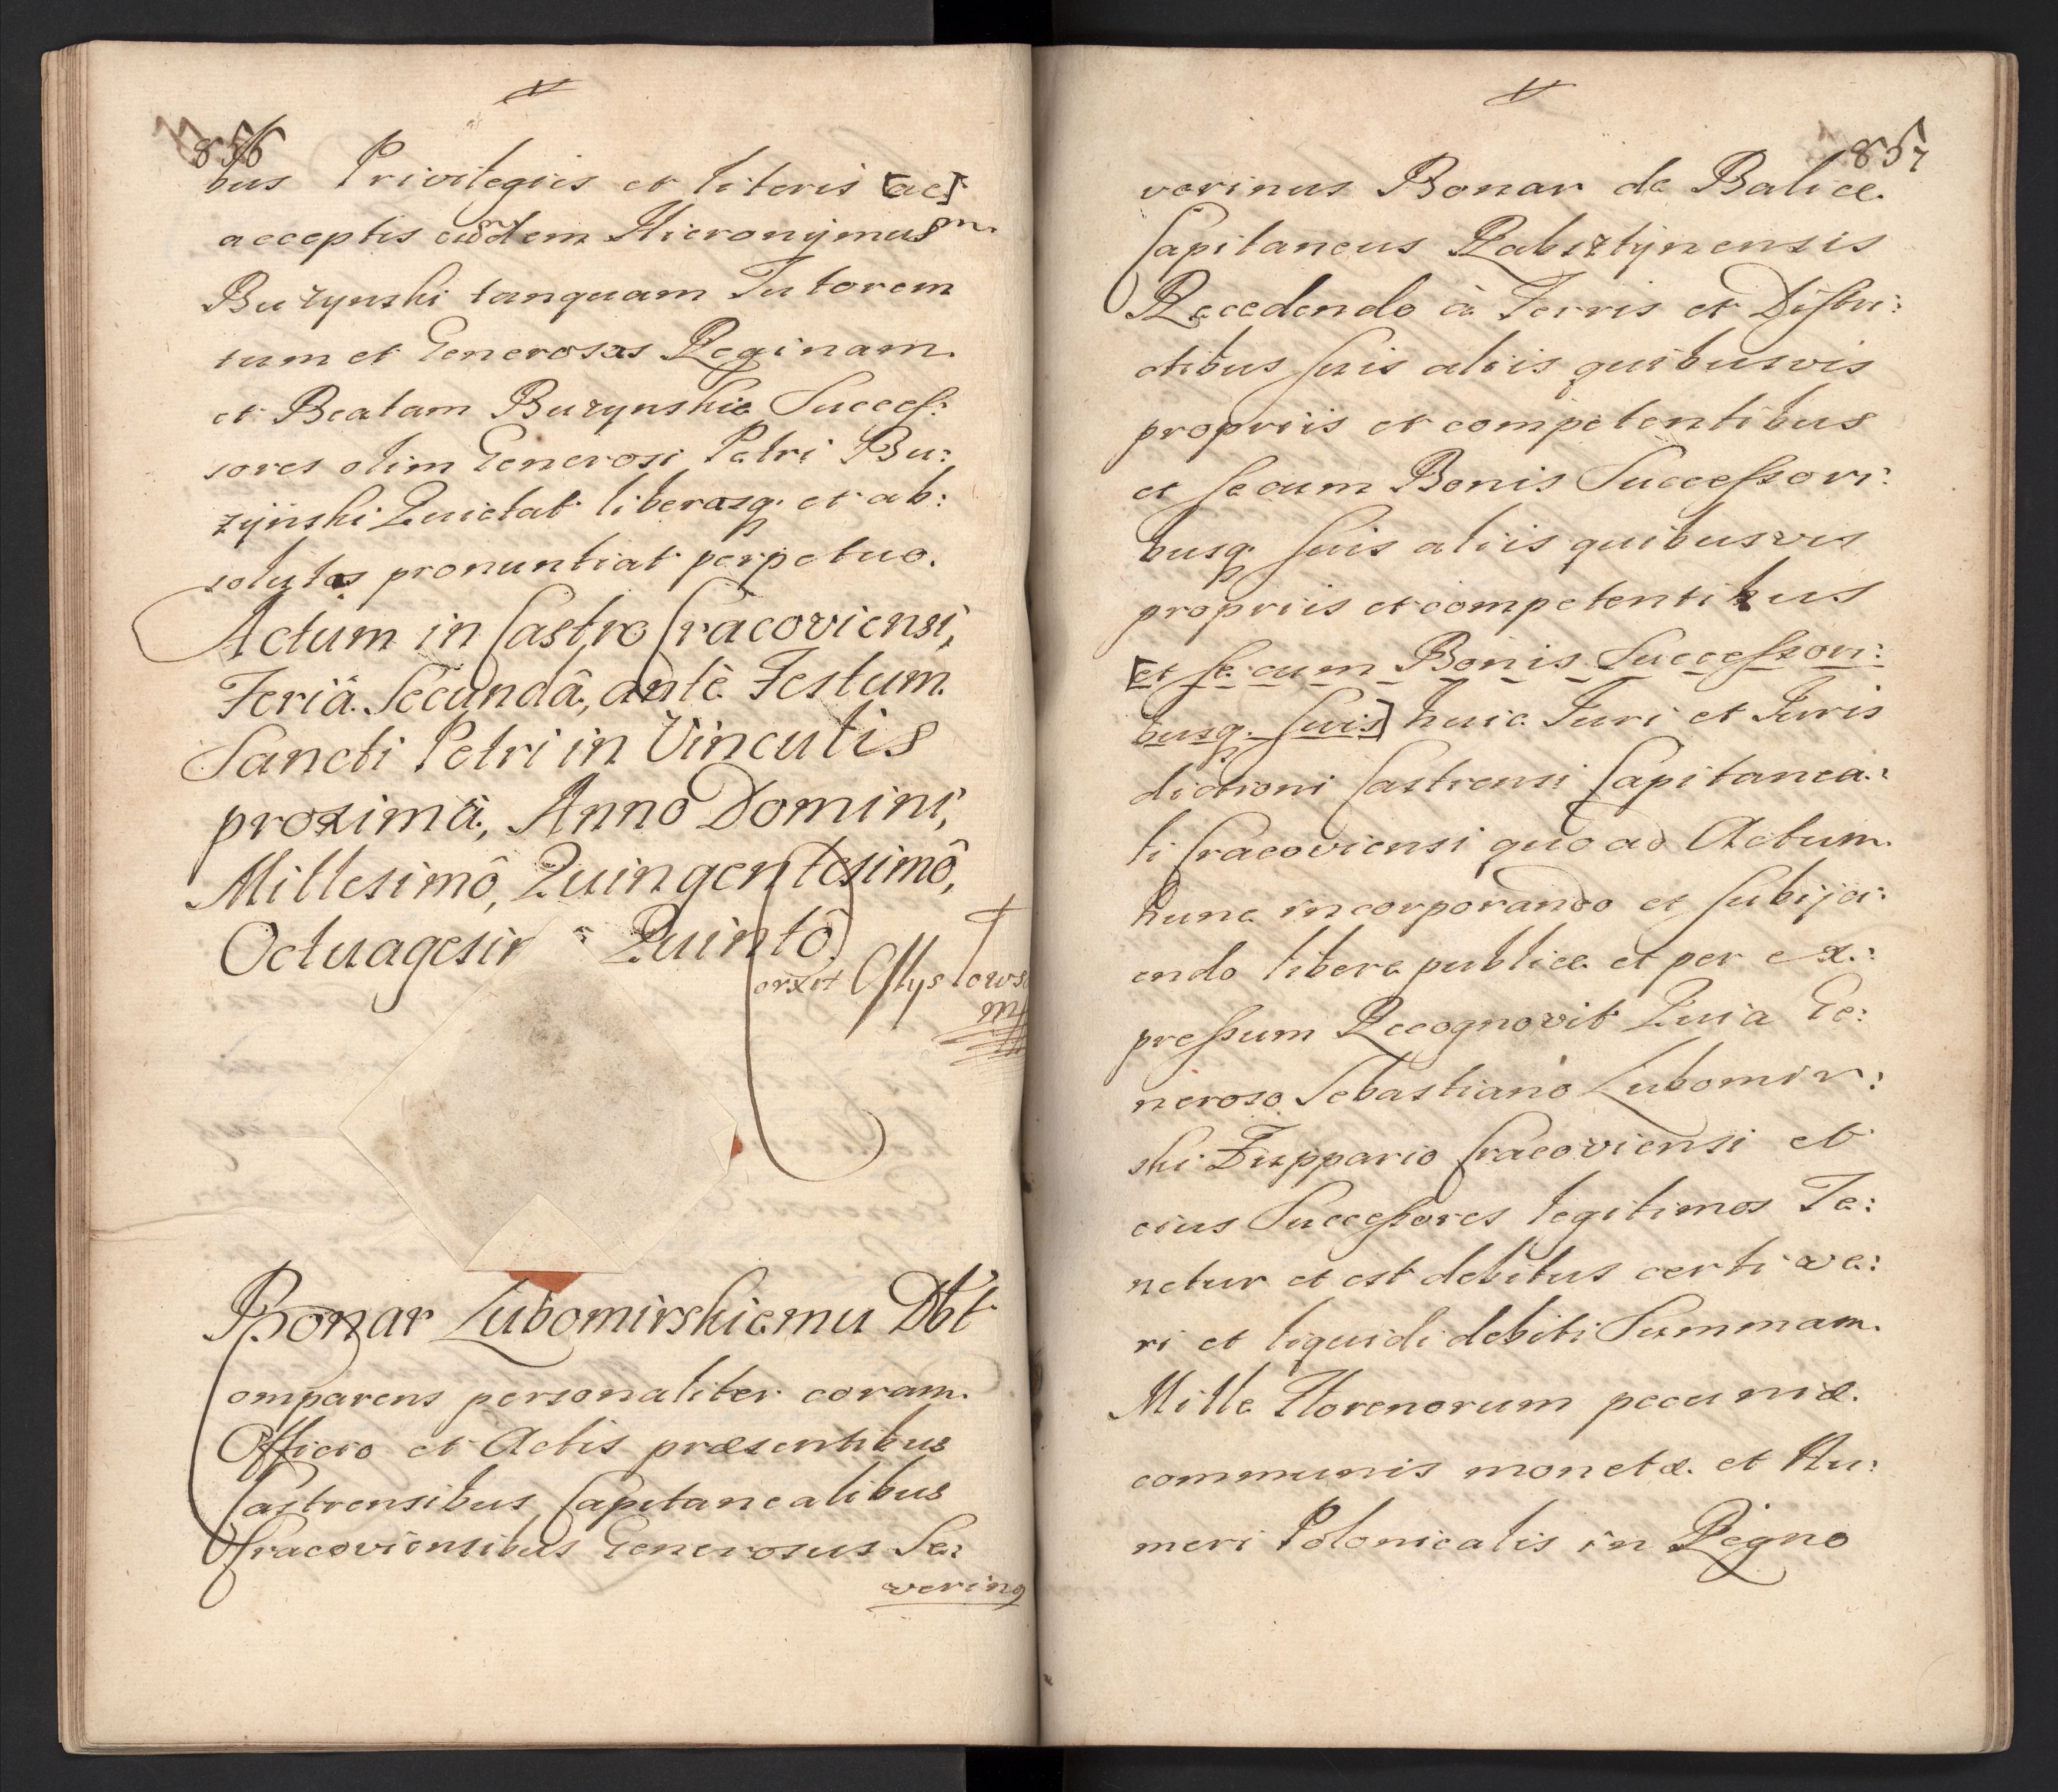 856
bus Privilegiis et literis [ac]
acceptis eiusdem Hieronymum
Buzynski tanquam Tutorem
tum et Generosas Reginam
et Beatam Buzynskie Succes:
sores olim Generosi Petri Bu:
zynski Quietat liberasq. et ab:
solutas pronuntiat perpetuo.
Actum in Castro Cracoviensi,
Feriâ Secundâ, antè Festum
Sancti Petri in Vinculis
proximâ, Anno Domini,
Millesimô, Quingentesimô,
Octuagesim Quintô
Bonar Lubomirskiemu Dbt
omparens personaliter coram
Officio et Actis præsentibus
Castrensibus Capitanealibus
Cracoviensibus Generosus Se:
verinus
857
verinus Bonar de Balice
Capitaneus Rabsztynensis
Recedendo à Terris et Distri:
ctibus suis aliis quibusvis
propriis et competentibus
et secum Bonis Successori:
busq. suis aliis quibusvis
propriis et competentibus
[et se cum Bonis Successori:
busq. suis] huic Iuri et Iuris
dictioni Castrensi Capitanea:
li Cracoviensi quo ad Actum
hunc incorporando et subijci:
endo libere publice et per ex:
pressum Recognovit Quia Ge:
neroso Sebastiano Lubomir:
ski Zuppario Cracoviensi et
eius Successores legitimos Te:
netur et est debitus certi ve:
ri et liquidi debiti Summam
Mille Florenorum pecuniæ
communis monetæ et Nu:
meri Polonicalis in Regno